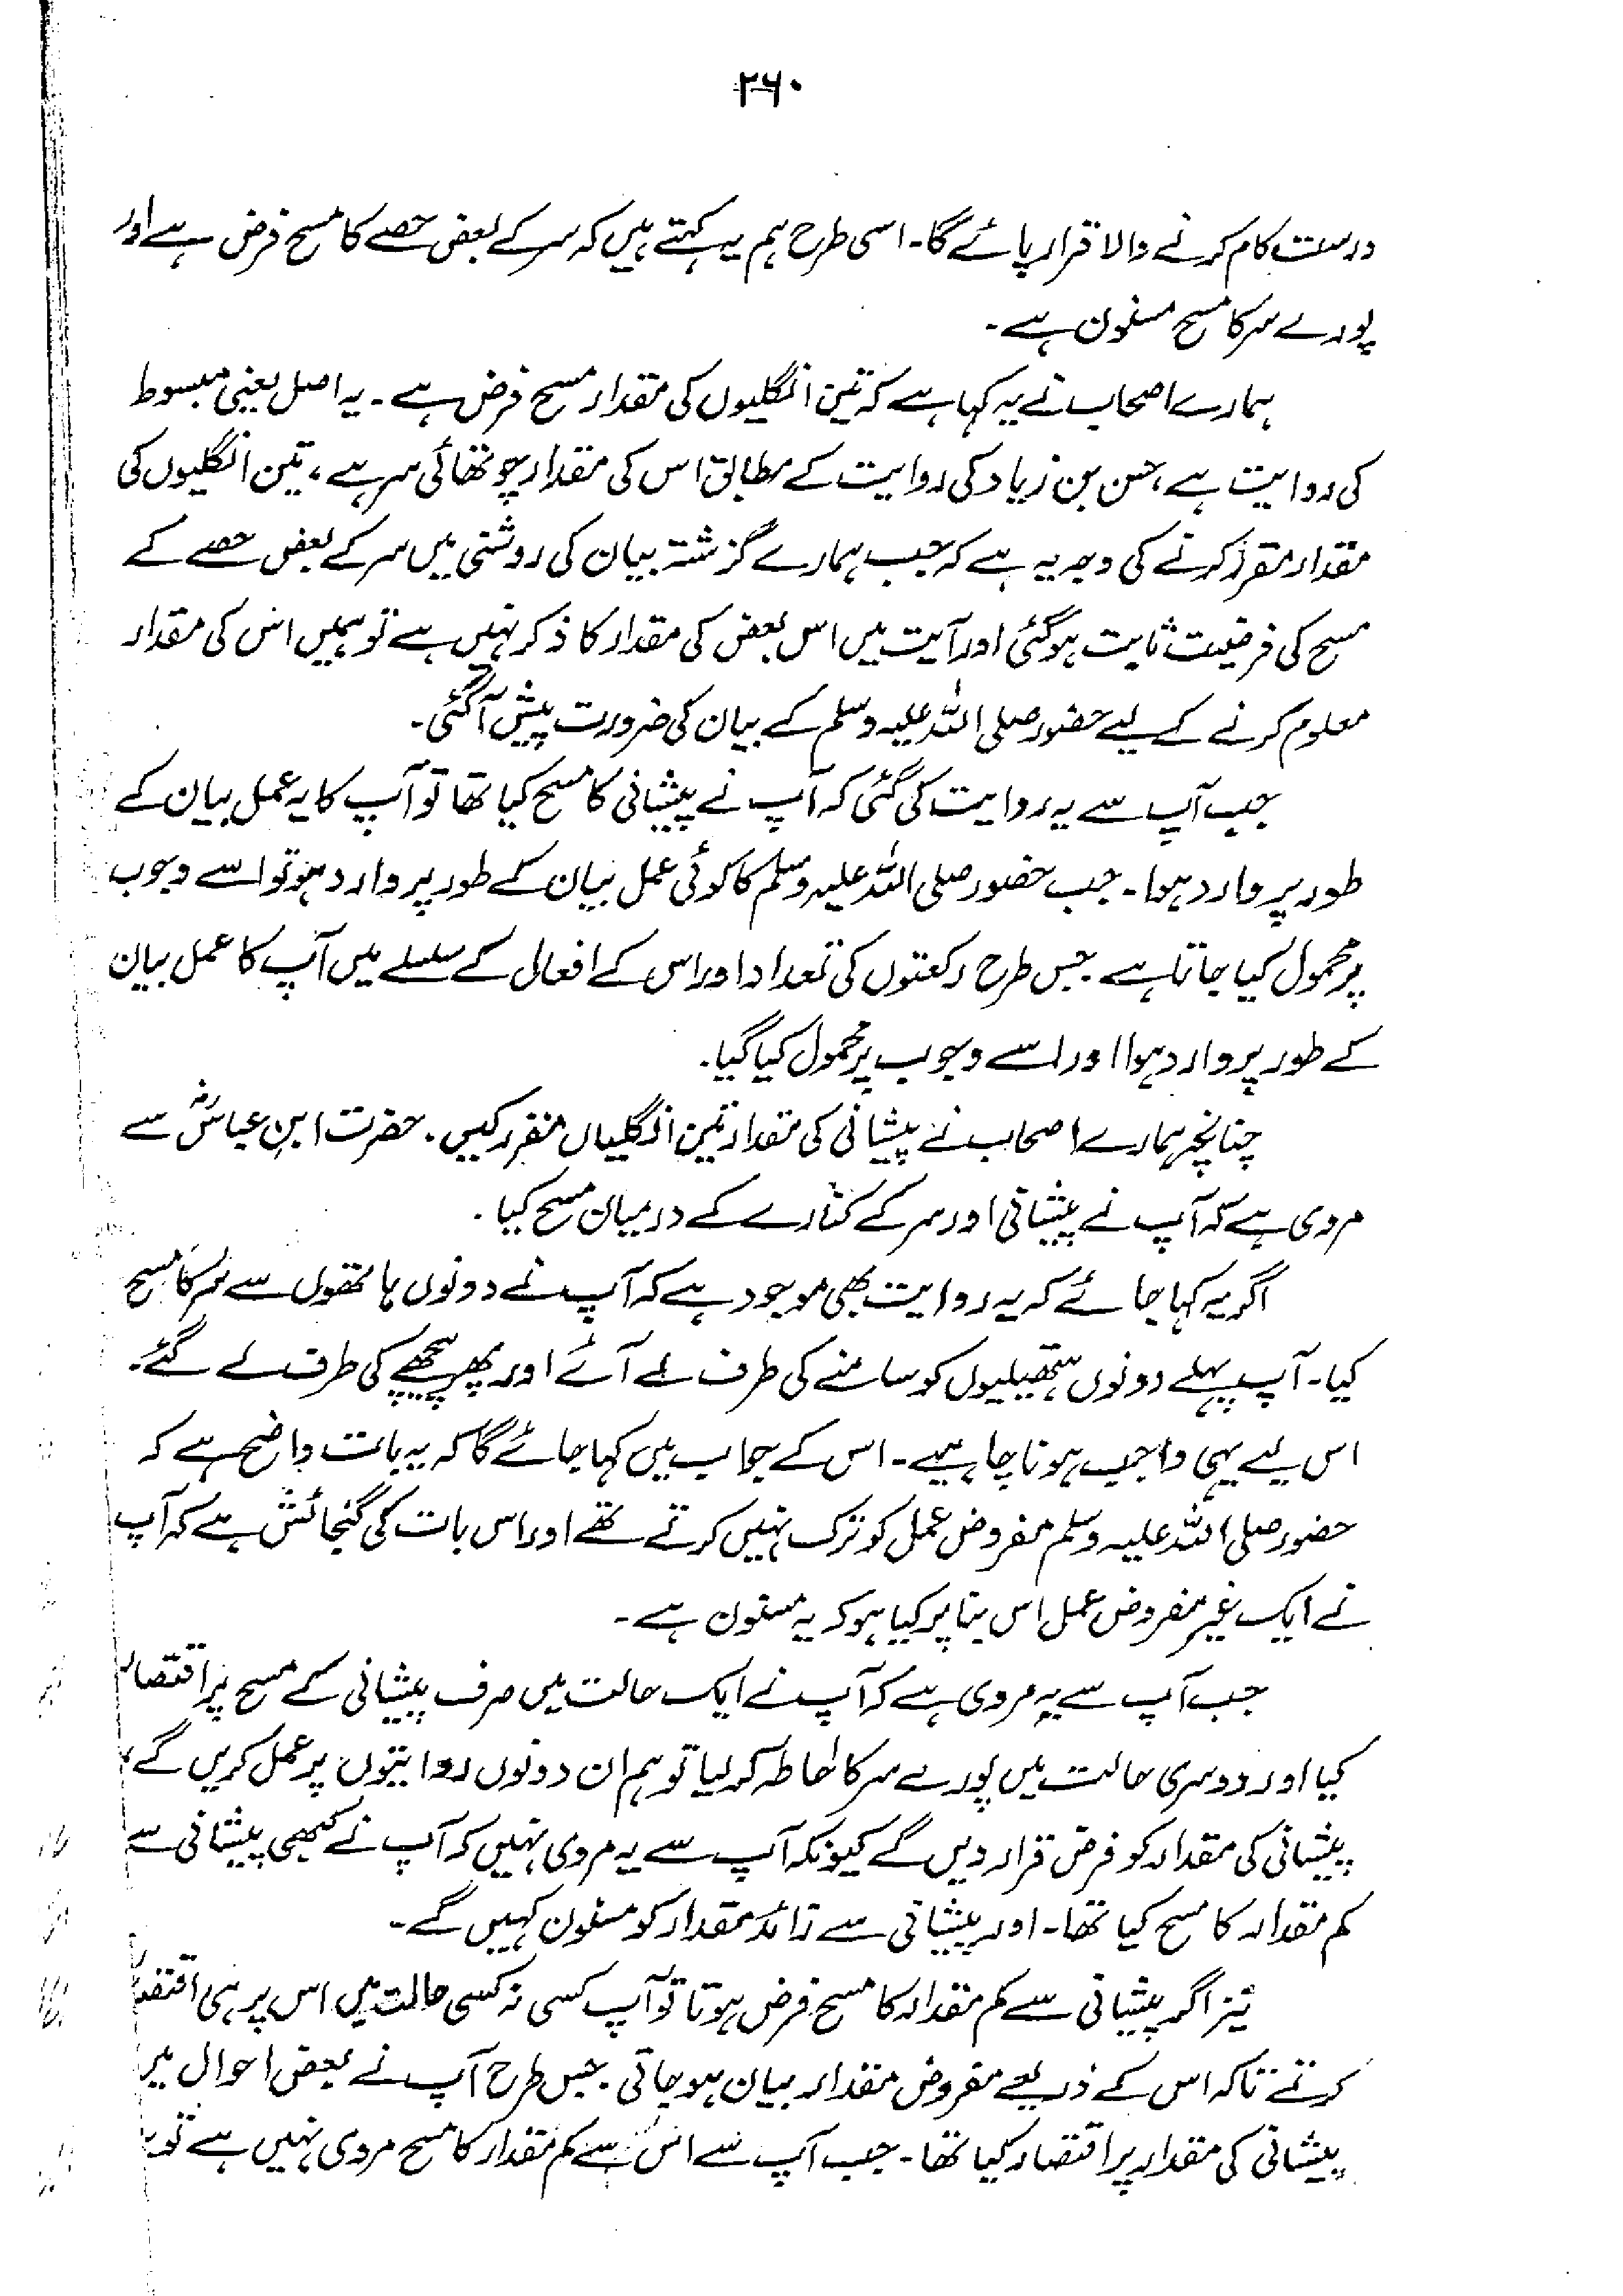 ۲۶۰
درست کام کرنے والا قرار پائے گا۔ اسی طرح ہم یہ کہتے ہیں کہ سر کے بعض حصے کا مسح فرض ہے اور
پورے سر کا مسح مسنون ہے۔
ہمارے اصحاب نے یہ کہا ہے کہ تین انگلیوں کی مقدار مسح فرض ہے۔ یہ اصل یعنی مبسوط
کی روایت ہے، حسن بن زیاد کی روایت کے مطابق اس کی مقدار چوتھائی سر ہے، تین انگلیوں کی
مقدار مقرر کرنے کی وجہ یہ ہے کہ جب ہمارے گزشتہ بیان کی روشنی میں سر کے بعض حصے کے
مسح کی فرضیت ثابت ہو گئی اور آیت میں اس بعض کی مقدار کا ذکر نہیں ہے تو ہمیں اس کی مقدار
معلوم کرنے کے لیے حضور صلی اللہ علیہ وسلم کے بیان کی ضرورت پیش آ گئی۔
جب آپ سے یہ روایت کی گئی کہ آپ نے پیشانی کا مسح کیا تھا تو آپ کا یہ عمل بیان کے
طور پر وارد ہوا۔ جب حضور صلی اللہ علیہ وسلم کا کوئی عمل بیان کے طور پر وارد ہو تو اسے وجوب
پر محمول کیا جاتا ہے جس طرح رکعتوں کی تعداد اور اس کے افعال کے سلسلے میں آپ کا عمل بیان
کے طور پر وارد ہوا اور اسے وجوب پر محمول کیا گیا۔
چنانچہ ہمارے اصحاب نے پیشانی کی مقدار تین انگلیاں مقرر کیں۔ حضرت ابنِ عباسؓ سے
مروی ہے کہ آپ نے پیشانی اور سر کے کنارے کے درمیان مسح کیا۔
اگر یہ کہا جائے کہ یہ روایت بھی موجود ہے کہ آپ نے دونوں ہاتھوں سے سر کا مسح
کیا۔ آپ پہلے دونوں ہتھیلیوں کو سامنے کی طرف لے آئے اور پھر پیچھے کی طرف لے گئے۔
اس لیے یہی واجب ہونا چاہیے۔ اس کے جواب میں کہا جائے گا کہ یہ بات واضح ہے کہ
حضور صلی اللہ علیہ وسلم مفروض عمل کو ترک نہیں کرتے تھے اور اس بات کی گنجائش ہے کہ آپ
نے ایک غیر مفروض عمل اس بنا پر کیا ہو کہ یہ مسنون ہے۔
جب آپ سے یہ مروی ہے کہ آپ نے ایک حالت میں صرف پیشانی کے مسح پر اقتصار
کیا اور دوسری حالت میں پورے سر کا احاطہ کر لیا تو ہم ان دونوں روایتوں پر عمل کریں گے،
پیشانی کی مقدار کو فرض قرار دیں گے کیونکہ آپ سے یہ مروی نہیں کہ آپ نے کبھی پیشانی سے
کم مقدار کا مسح کیا تھا۔ اور پیشانی سے زائد مقدار کو مسنون کہیں گے۔
نیز اگر پیشانی سے کم مقدار کا مسح فرض ہوتا تو آپ کسی نہ کسی حالت میں اس پر ہی
کرتے تاکہ اس کے ذریعے مفروض مقدار بیان ہو جاتی۔ جس طرح آپ نے بعض احوال میں
پیشانی کی مقدار پر اقتصار کیا تھا۔ جب آپ سے اس سے کم مقدار کا مسح مروی نہیں ہے تو